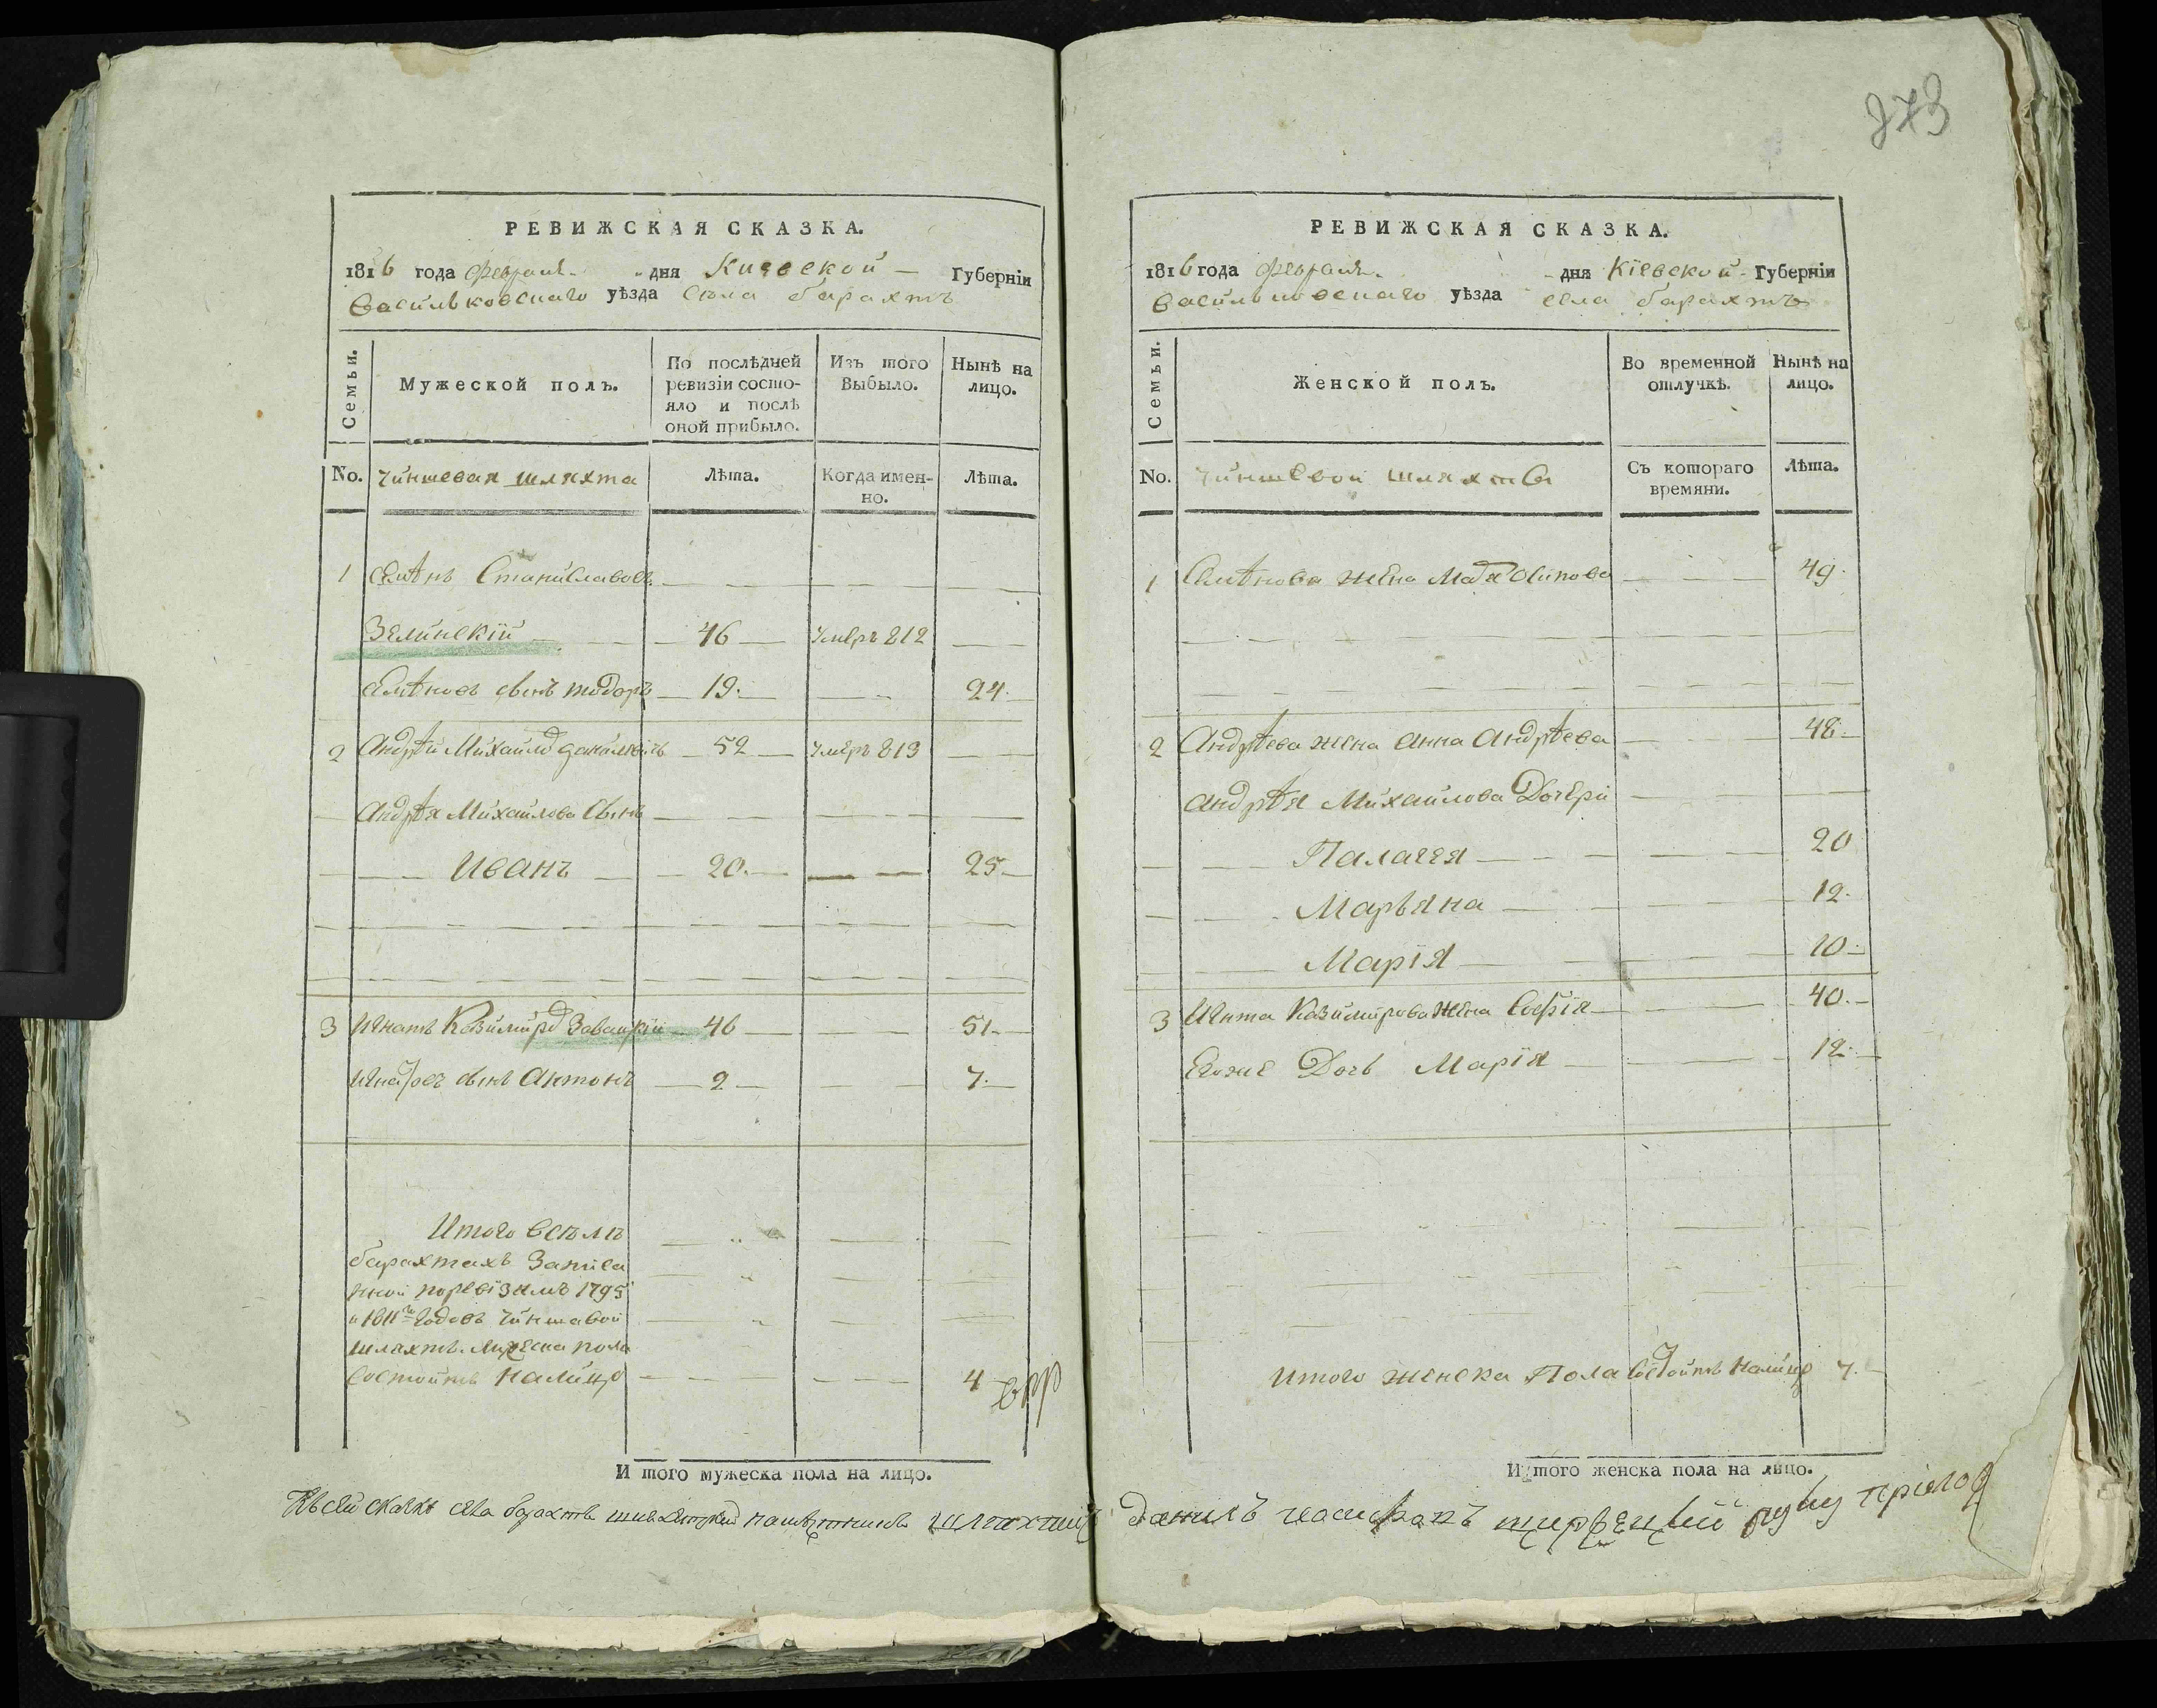 273
РЕВИЖСКАЯ СКАЗКА.
1816 года февраля дня Киевской Губерніи
Васильковскаго уѣзда села барахтъ
Семьи.
Мужеской полъ.
По послѣдней ревизіи состо-
яло и послѣ
оной прибыло.
Изъ того
Выбыло.
Нынѣ на
лицо.
No. чиншевая шляхта Лѣта. Когда имен-
но. Лѣта.
1 Семѣнъ Станиславовъ
Зелинскій 46 умеръ 812
Семѣновъ сынъ тодоръ 19. 24.
2 Андрѣй Михайло 52 умеръ 813
Андрѣя Михайлова сынъ
Иванъ 20. 25
3 Игнатъ Казимиро 46 51.
сынъ Антонъ 2 7.
Итого всѣлѣ
барахтахъ Записа
нной поревізиямъ 1795
и 1811 годовъ чиншевой
шляхтѣ мужеска пола
состоитъ налицо 4
И того мужеска пола на лицо.
РЕВИЖСКАЯ СКАЗКА.
1816 года февраля дня Кіевской Губерніи
Васильковскаго уѣзда села барахтъ
Семьи.
Женской полъ.
Во временной
отлучкѣ.
Нынѣ на
лицо.
No. чиншевой шляхты Съ котораго
времяни. Лѣта.
1 Семѣнова жена Осипова 49.
2 Андрѣева жена Анна Андрѣева 48.
Андрѣя Михайлова Дочери
Палагея 20
Марьяна 12.
Марія 10.
3 Игната Казимирова жена Софія 40.
Егоже Дочь Марія 12.
Итого женска Пола состоитъ налицо 7.
И того женска пола на лицо.
Къ сей скаске села барахтъ шляхтичъ
Данилъ руку приложи